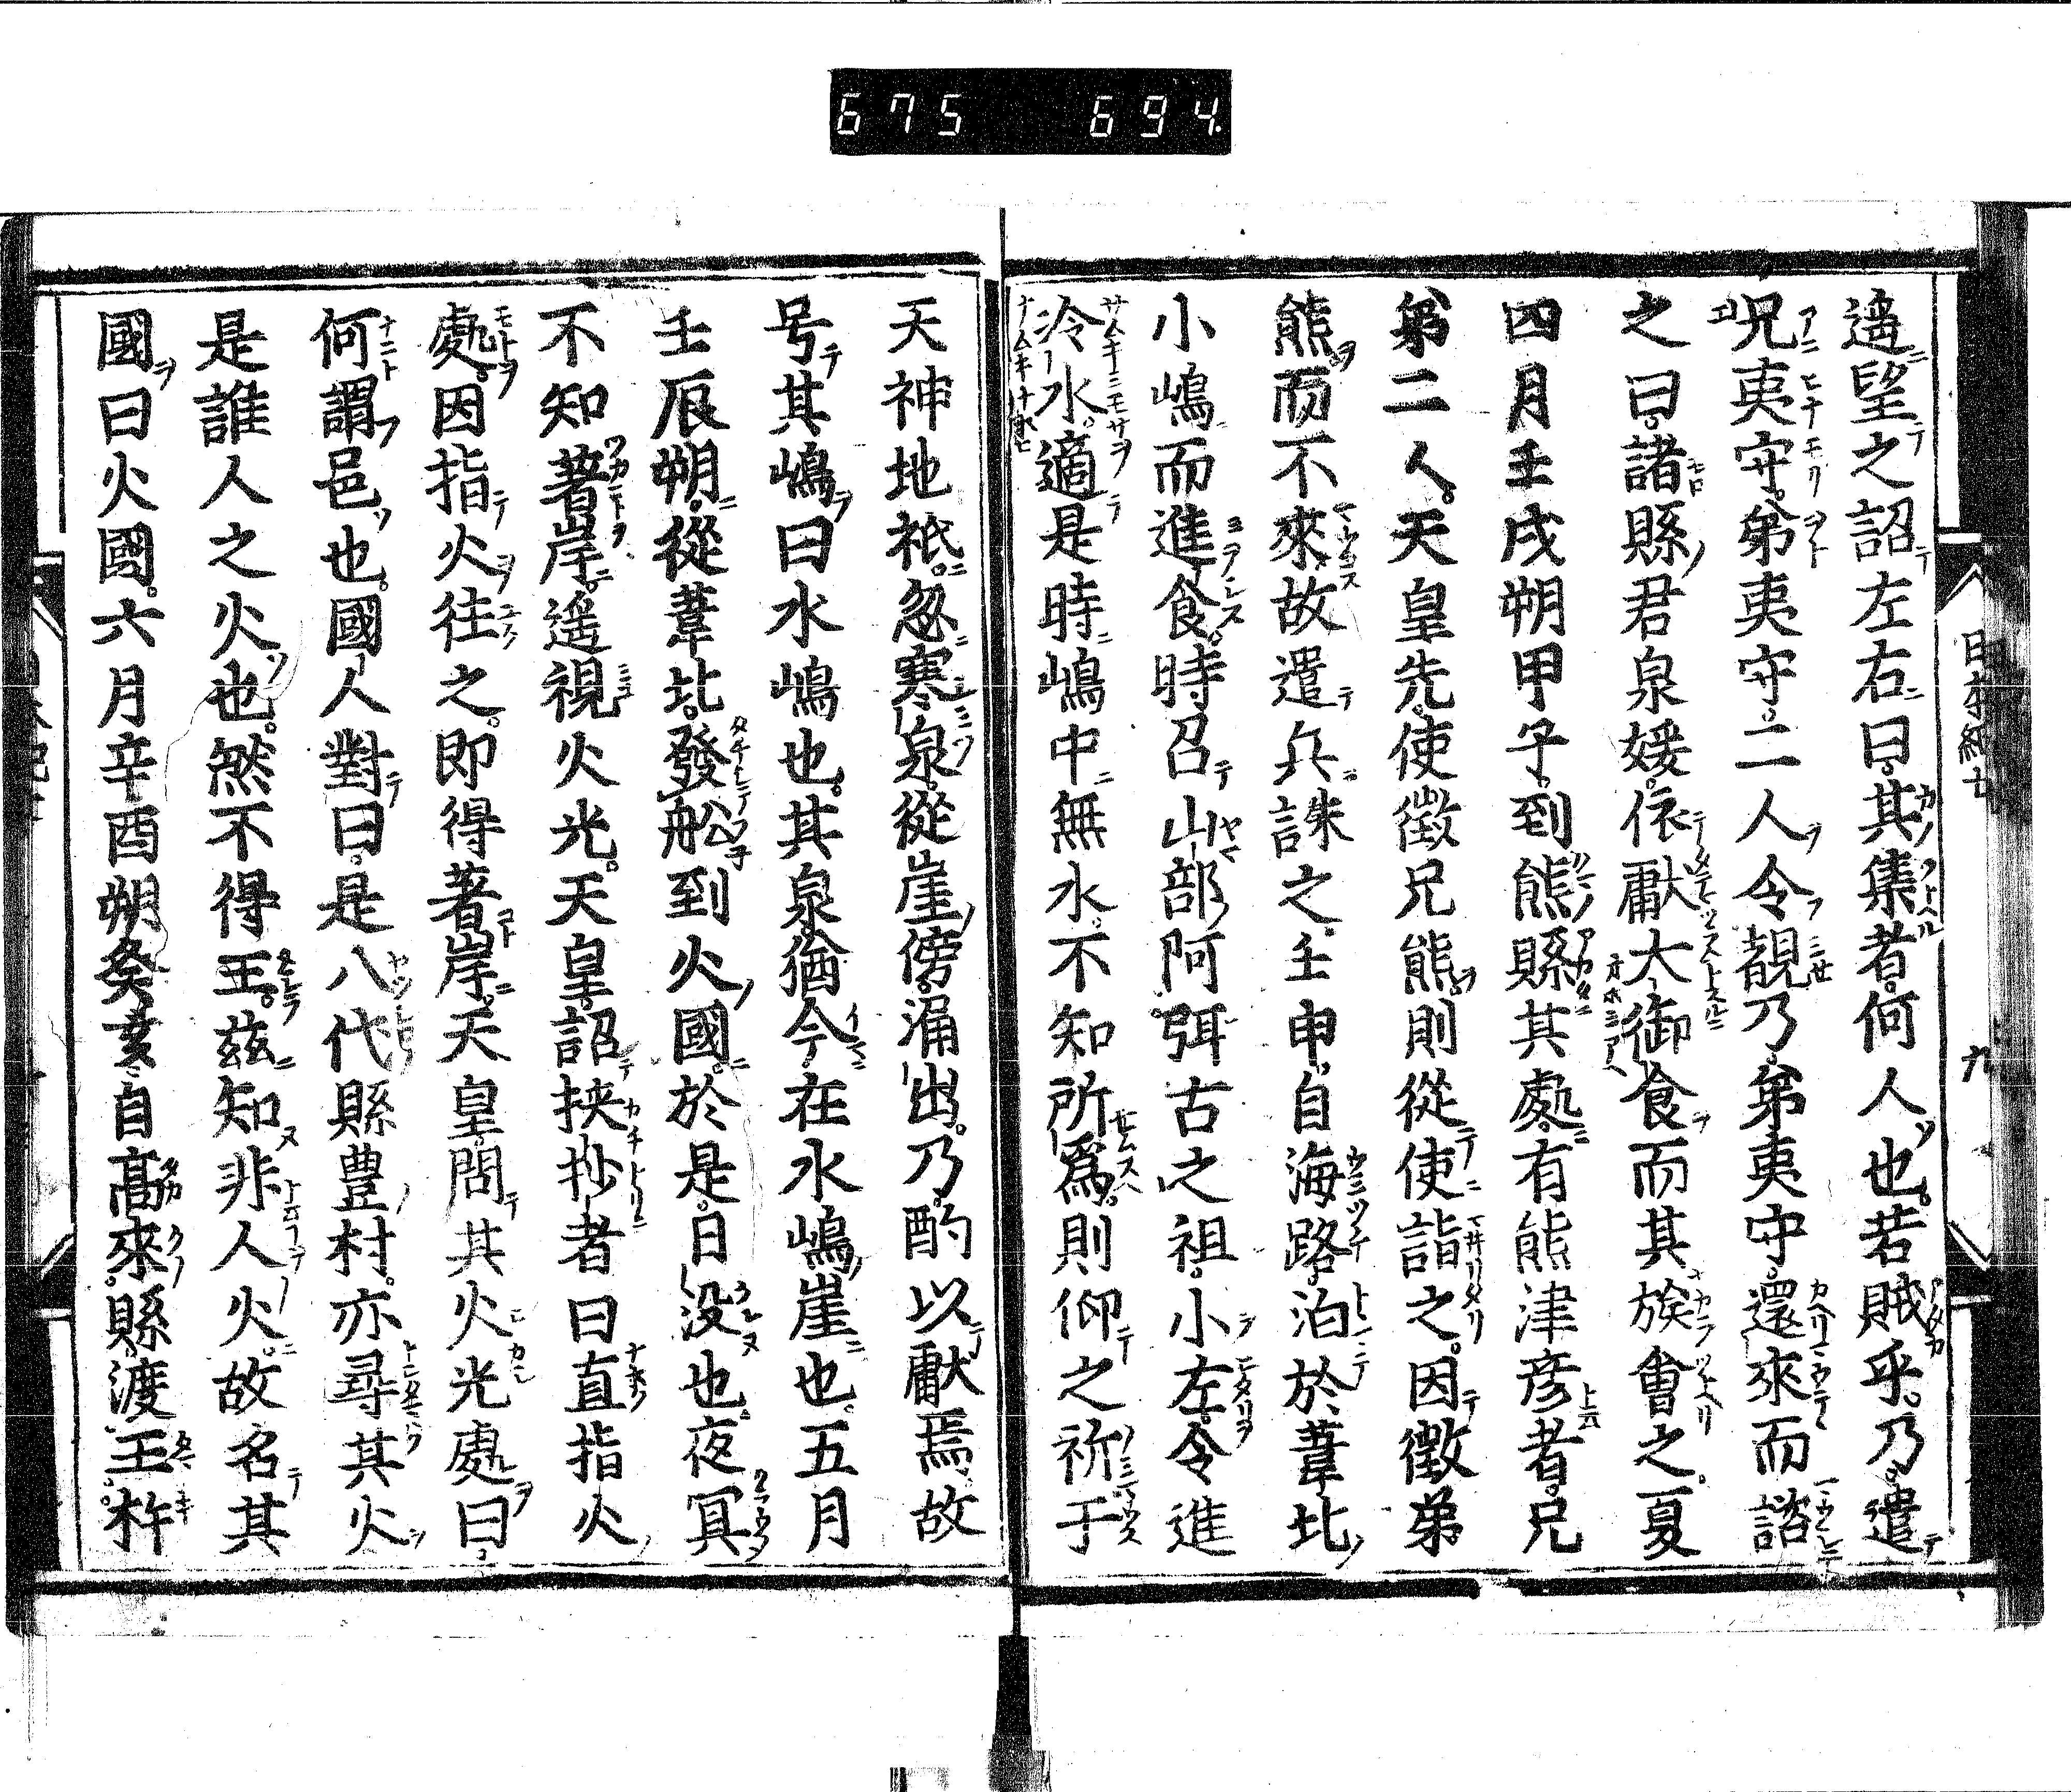 675 694
遙望之詔左右曰其集者何人也若賊乎乃遣
兄夷守弟夷守二人令覩乃弟夷守還來而諮
之曰諸縣君泉媛依獻大御食而其族會之夏
四月壬戌朔甲子到熊縣其處有熊津彦者兄
弟二人天皇先使徵兄熊則從使詣之因徵弟
熊而不來故遣兵誅之壬申自海路泊於葦北
小嶋而進食時召山部阿弭古之祖小左令進
冷水適是時嶋中無水不知所爲則仰之祈于
天神地祇忽寒泉從崖傍涌出乃酌以獻焉故
号其嶋曰水嶋也其泉猶今在水嶋崖也五月
壬辰朔從葦北發舩到火國於是日没也夜冥
不知著岸遥視火光天皇詔挾抄者曰直指火
處因指火往之即得著岸天皇問其火光處曰
何謂邑也國人對曰是八代縣豊村亦尋其火
是誰人之火也然不得主茲知非人火故名其
國曰火國六月辛酉朔癸亥自髙來縣渡玉杵
日本紀七
九